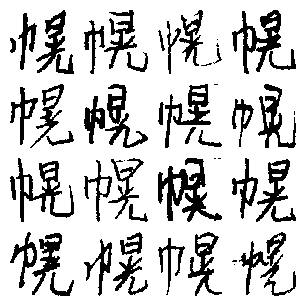 幌幌幌幌
幌幌幌幌
幌幌幌幌
幌幌幌幌